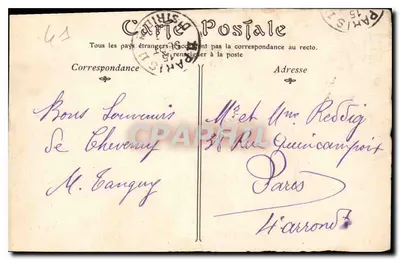 41
Carte Postale
Tous les pays étrangers n'acceptent pas la correspondance au recto.
renseigner à la poste
Correspondance
Adresse
Bons Souvenirs
de Cheverny
M. Tanguy
Mr et Mme Reddig
38 Rue Quincampoix
Paris
4e arrondt
PARIS
DISTRIB
PARIS